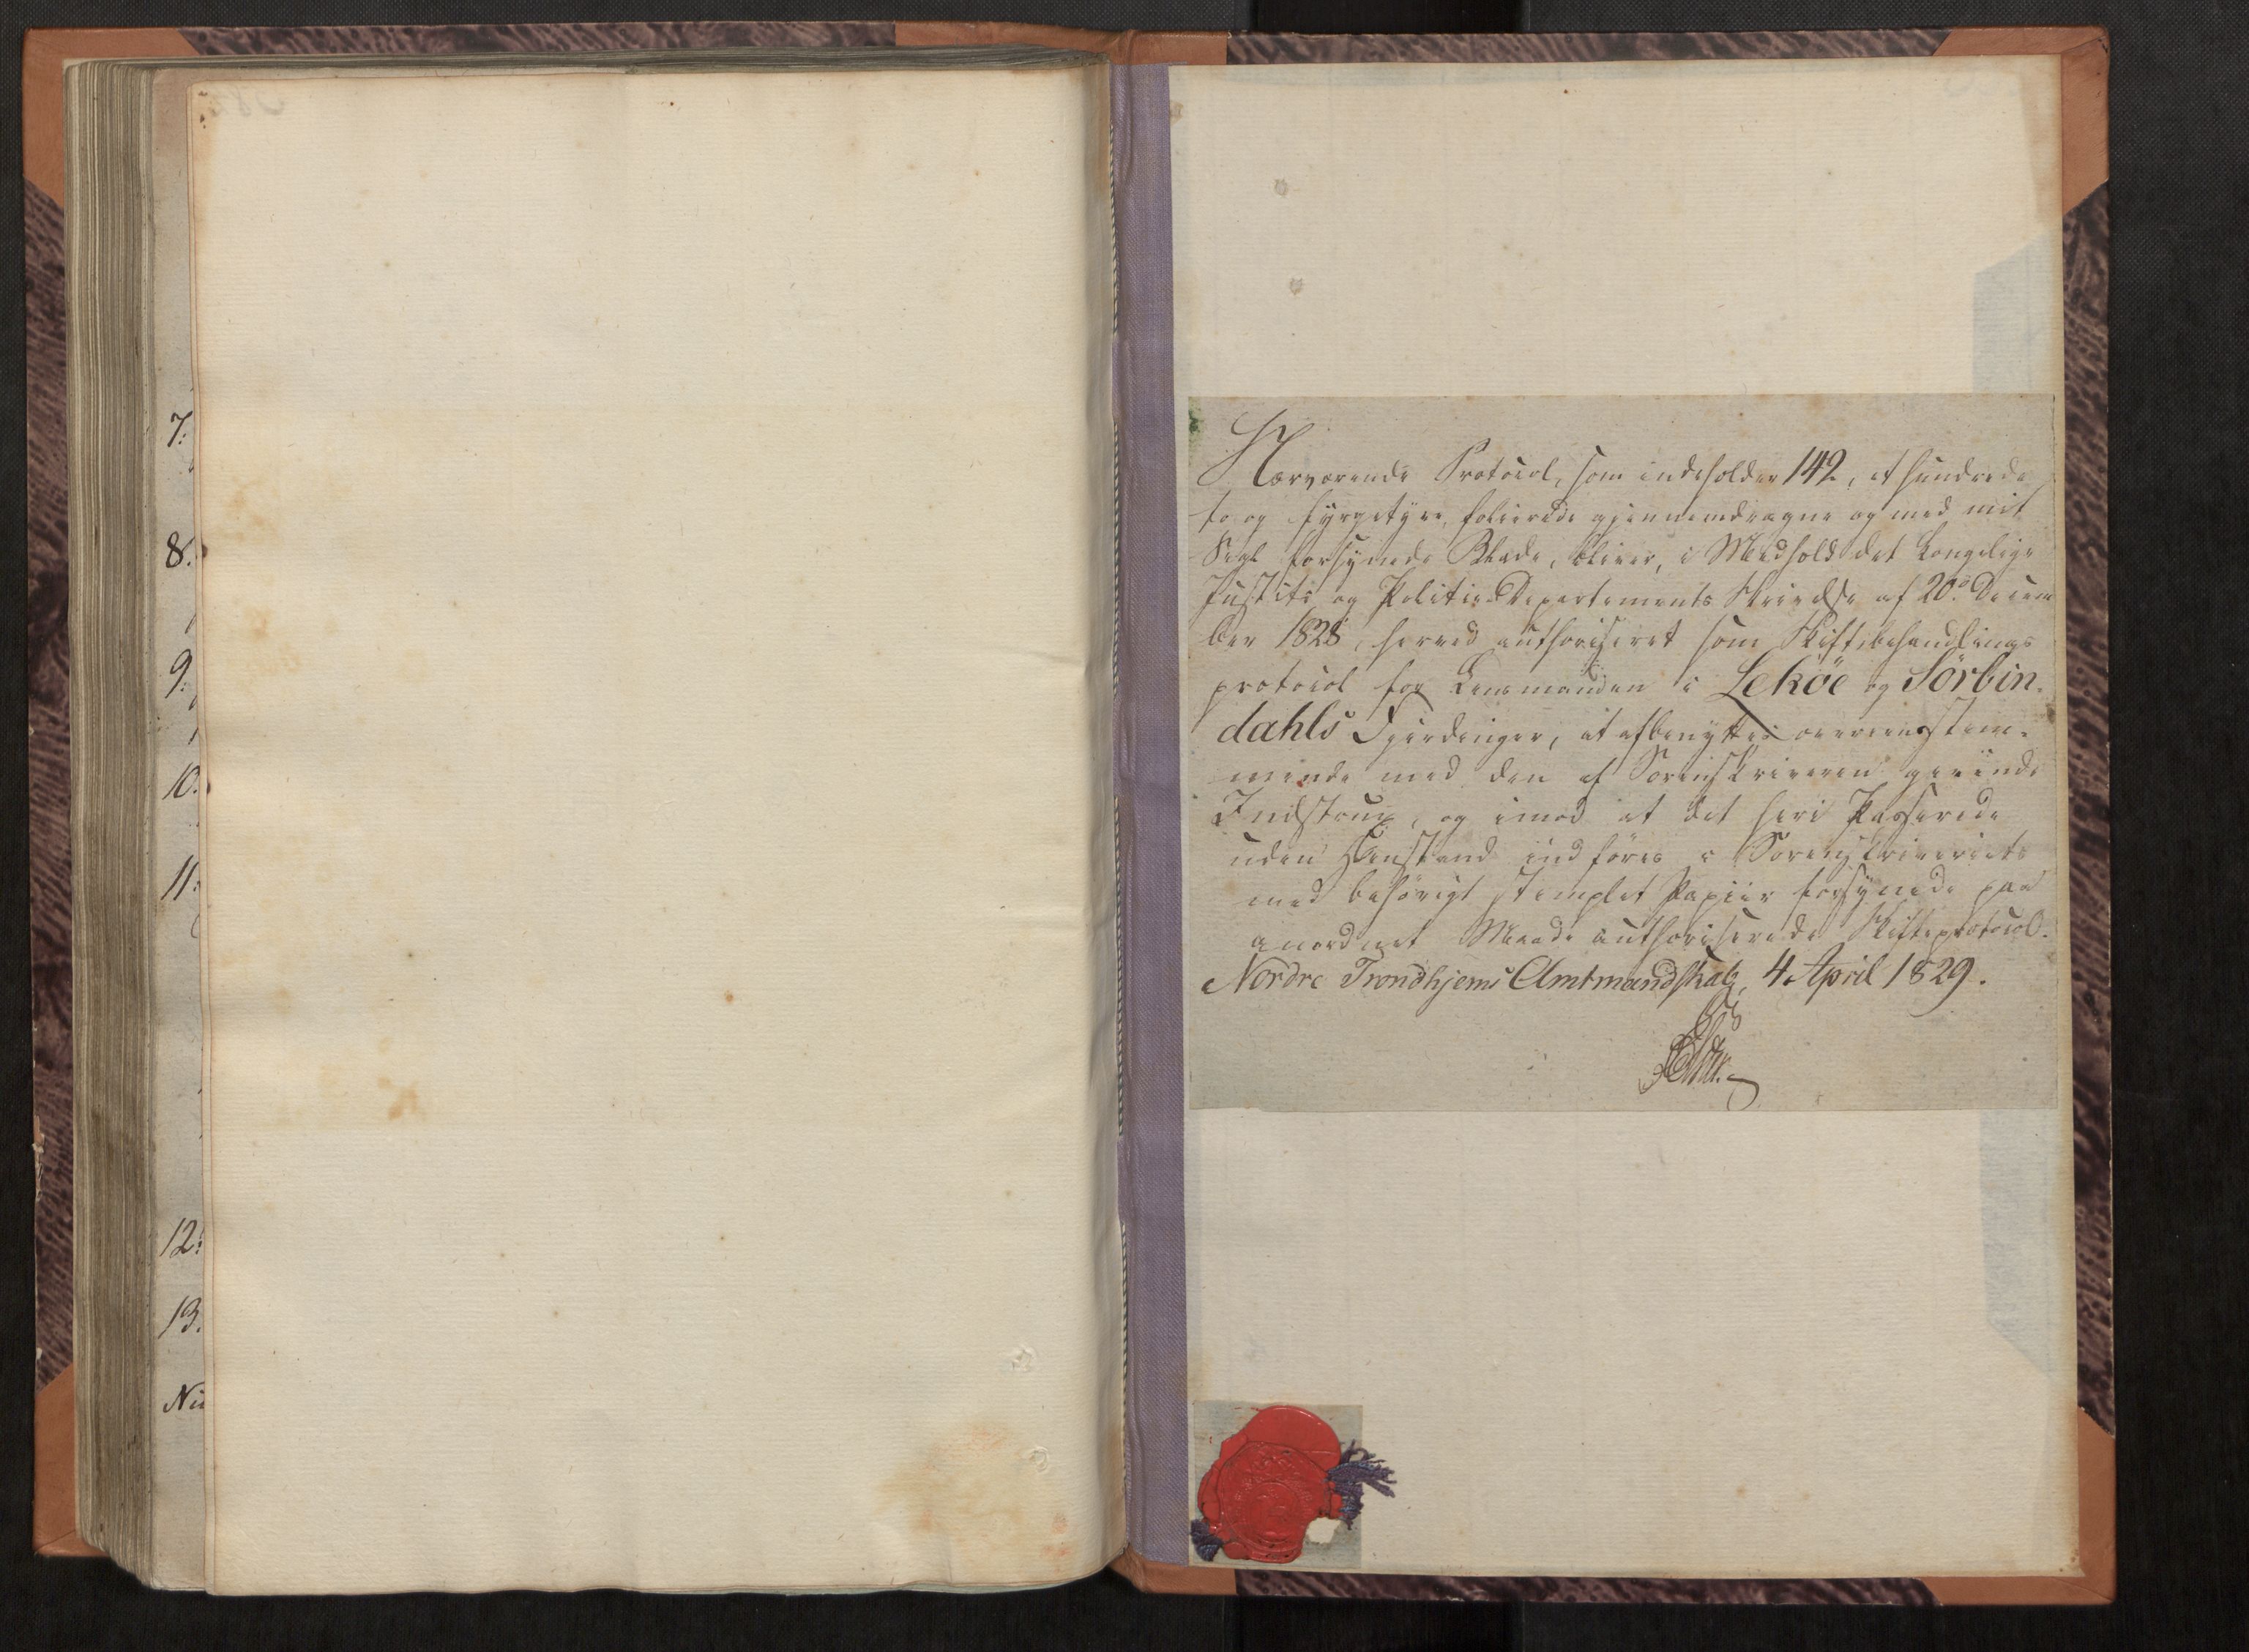 7.
8.
9.
10.
11.
12.
13.
Nærværende Protocol, som indeholder 142, et hundrede
to og fyrgetyve, folierede gjennemdragne og med mit
Segl forsynede Blade, bliver, i Medhold det kongelige
Justits og Politie-Departements Skrivelse af 20de Decem
ber 1828, herved authoriseret som Skiftebehandlings
protocol for Lensmanden i Lekøe og Sörbin-
dahls Fjerdinger, at afbenyttes overeensstem-
mende med den af Sorenskriveren givende
Instrux, og imod at det heri Passerede
uden Henstand indføres i Sorenskriveriets
med behørigt stemplet Papiir forsynede paa
anordnet Maade authoriserede Skifteprotocol.
Nordre Trondhjems Amtmandskab, 4. April 1829.